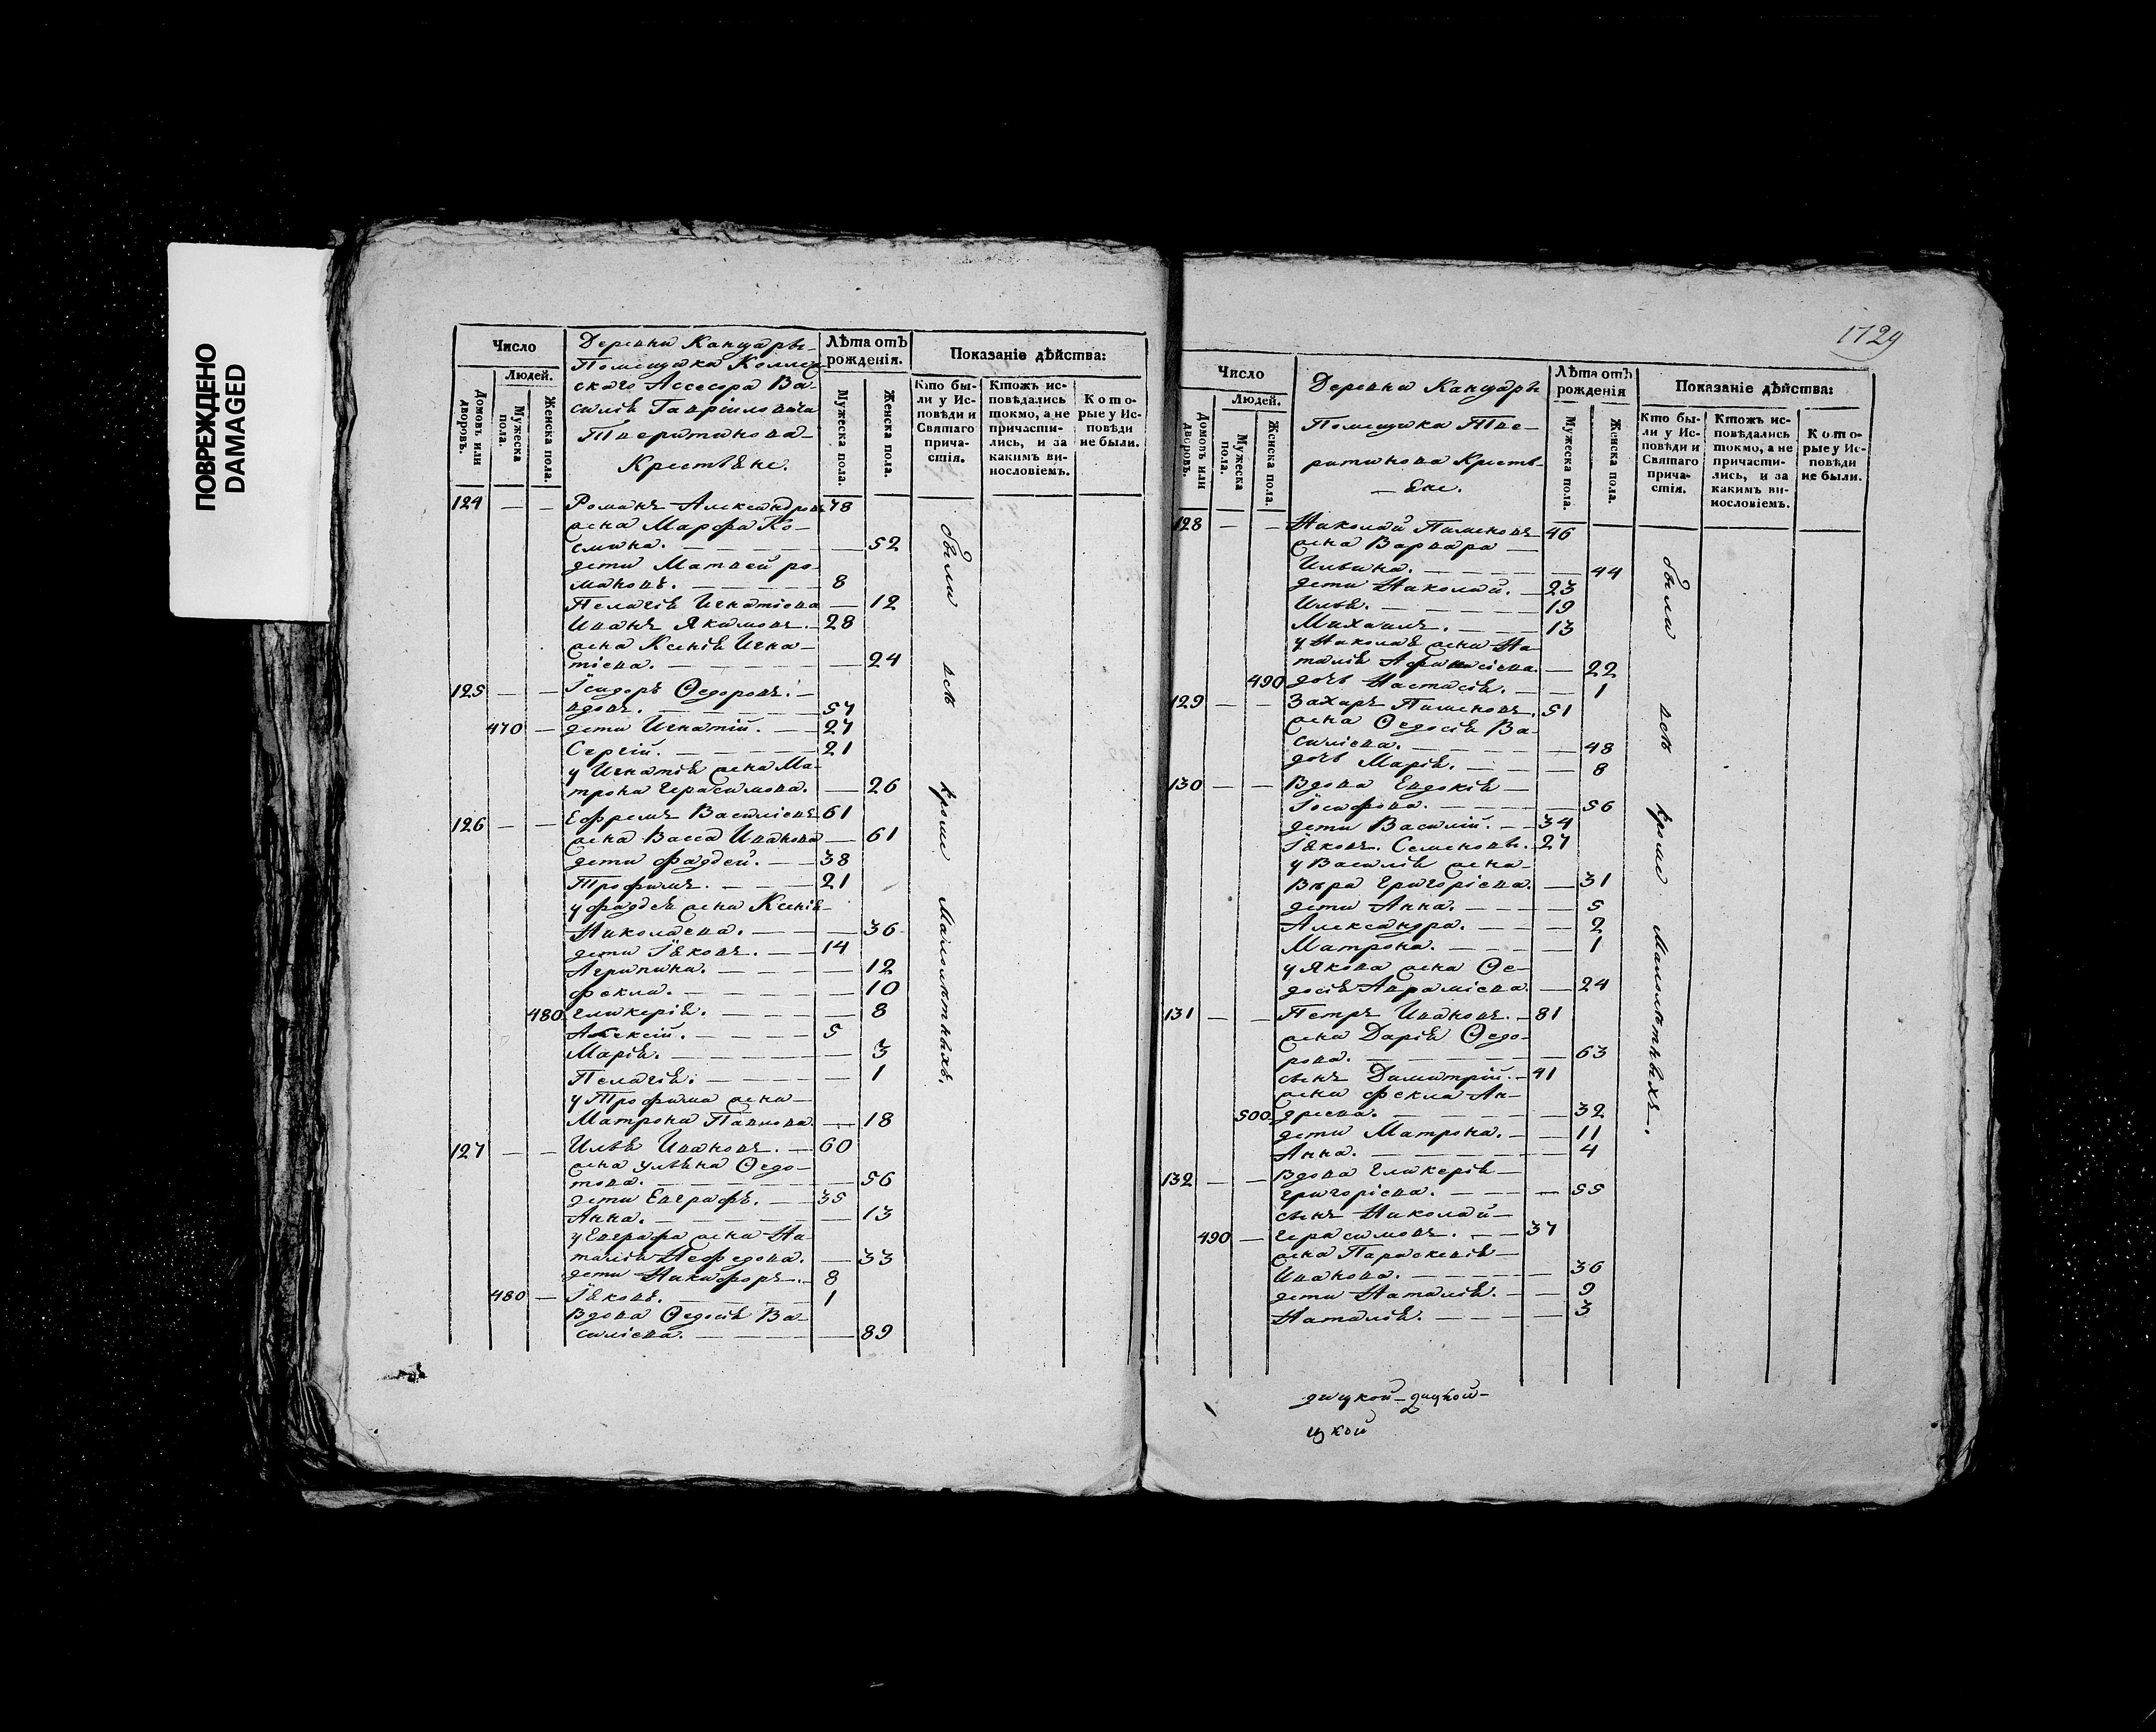 ПОВРЕЖДЕНО
DAMAGED
Число
Людей.
Домовъ или дворовъ.
Мужеска пола.
Женска пола.
Деревни Канцарь
Помещика Коллеж
скаго Ассесора Ва-
силія Гавріиловича
Тверитинова
Крестьяне.
Лѣта отъ
рожденія.
Мужеска пола.
Женска пола.
Показаніе дѣйства:
Кто бы-
ли у Ис-
повѣди и
Святаго
прича-
стія.
Ктожъ ис-
повѣдались
токмо, а не
причасти-
лись, и за
какимъ ви-
нословіемъ.
Кото-
рые у Ис-
повѣди
не были.
124 — — Романъ Александровъ 48
жена Марфа Ко-
смина. — 52
дети Матвей ро-
мановъ. — 8
Пелагія Игнатіева — 12
Иванъ Якимовъ. — 28
жена Ксенія Игна-
тіева. — 24
125 — — Ісидоръ Ѳедоровъ. —
вдовъ. — 57
470 — дети Игнатій. — 27
Сергій. — 21
у Игнатія жена Ма-
трона Герасимова. — 26
126 — — Ефремъ Василіевъ 61
жена Васса Иванова — 61
дети Фаддей. — 38
Трофимъ. — 21
у Фаддея жена Ксенія
Николаева. — 36
дети Іяковъ. — 14
Агрипина. — 12
Фекла. — 10
480 Гликерія. — 8
Алексій. — 5
Марія. — 3
Пелагія. — 1
у Трофима жена —
Матрона Павлова. — 18
127 — — Илья Ивановъ. — 60
жена Ульяна Ѳедо-
това. — 56
дети Евграфъ. — 35
Анна. — 13
у Евграфа жена На-
талія Нефедова. — 33
дети Никифоръ. — 8
480 — Іяковъ. — 1
Вдова Ѳедосія Ва-
силіева. — 89
были всѣ кроме Малолѣтныхъ.
1729
Число
Людей.
Домовъ или дворовъ.
Мужеска пола.
Женска пола.
Деревни Канцарь
Помещика Тве-
ритинова Кресть-
— яне.
Лѣта отъ
рожденія
Мужеска пола.
Женска пола.
Показаніе дѣйства:
Кто бы-
ли у Ис-
повѣди и
Святаго
прича-
стія.
Ктожъ ис-
повѣдались
токмо, а не
причасти-
лись, и за
какимъ ви-
нословіемъ.
Кото-
рые у Ис-
повѣди
не были.
128 — — Николай Пименовъ 46
жена Варвара —
Ильина. — 44
дети Николай. — 23
Илья. — 19
Михаилъ. — 13
у Николая жена На-
талія Афанасіева — 22
490 дочь Настасія. — 1
129 — — Захаръ Пименовъ. 51
жена Ѳедосія Ва-
силіева. — 48
дочь Марія. — 8
130 — — Вдова Евдокія —
Іосифова. — 56
дети Василій. — 34
Іяковъ Семеновы. — 27
у Василія жена —
Вѣра Григоріева. — 31
дети Анна. — 5
Александра. — 2
Матрона. — 1
у Якова жена Ѳе-
досія Авраміева. — 24
131 — — Петръ Ивановъ. — 81
жена Дарія Ѳедо-
рова. — 63
сынъ Димитрій. — 41
жена Фекла Ан-
500 дреева. — 32
дети Матрона. — 11
Анна. — 4
132 — — Вдова Гликерія —
Григоріева. — 55
сынъ Николай —
490 — Герасимовъ. — 37
жена Параскевія —
Иванова. — 36
дети Наталія. — 9
Наталія. — 3
были всѣ кроме Малолѣтныхъ.
цкой